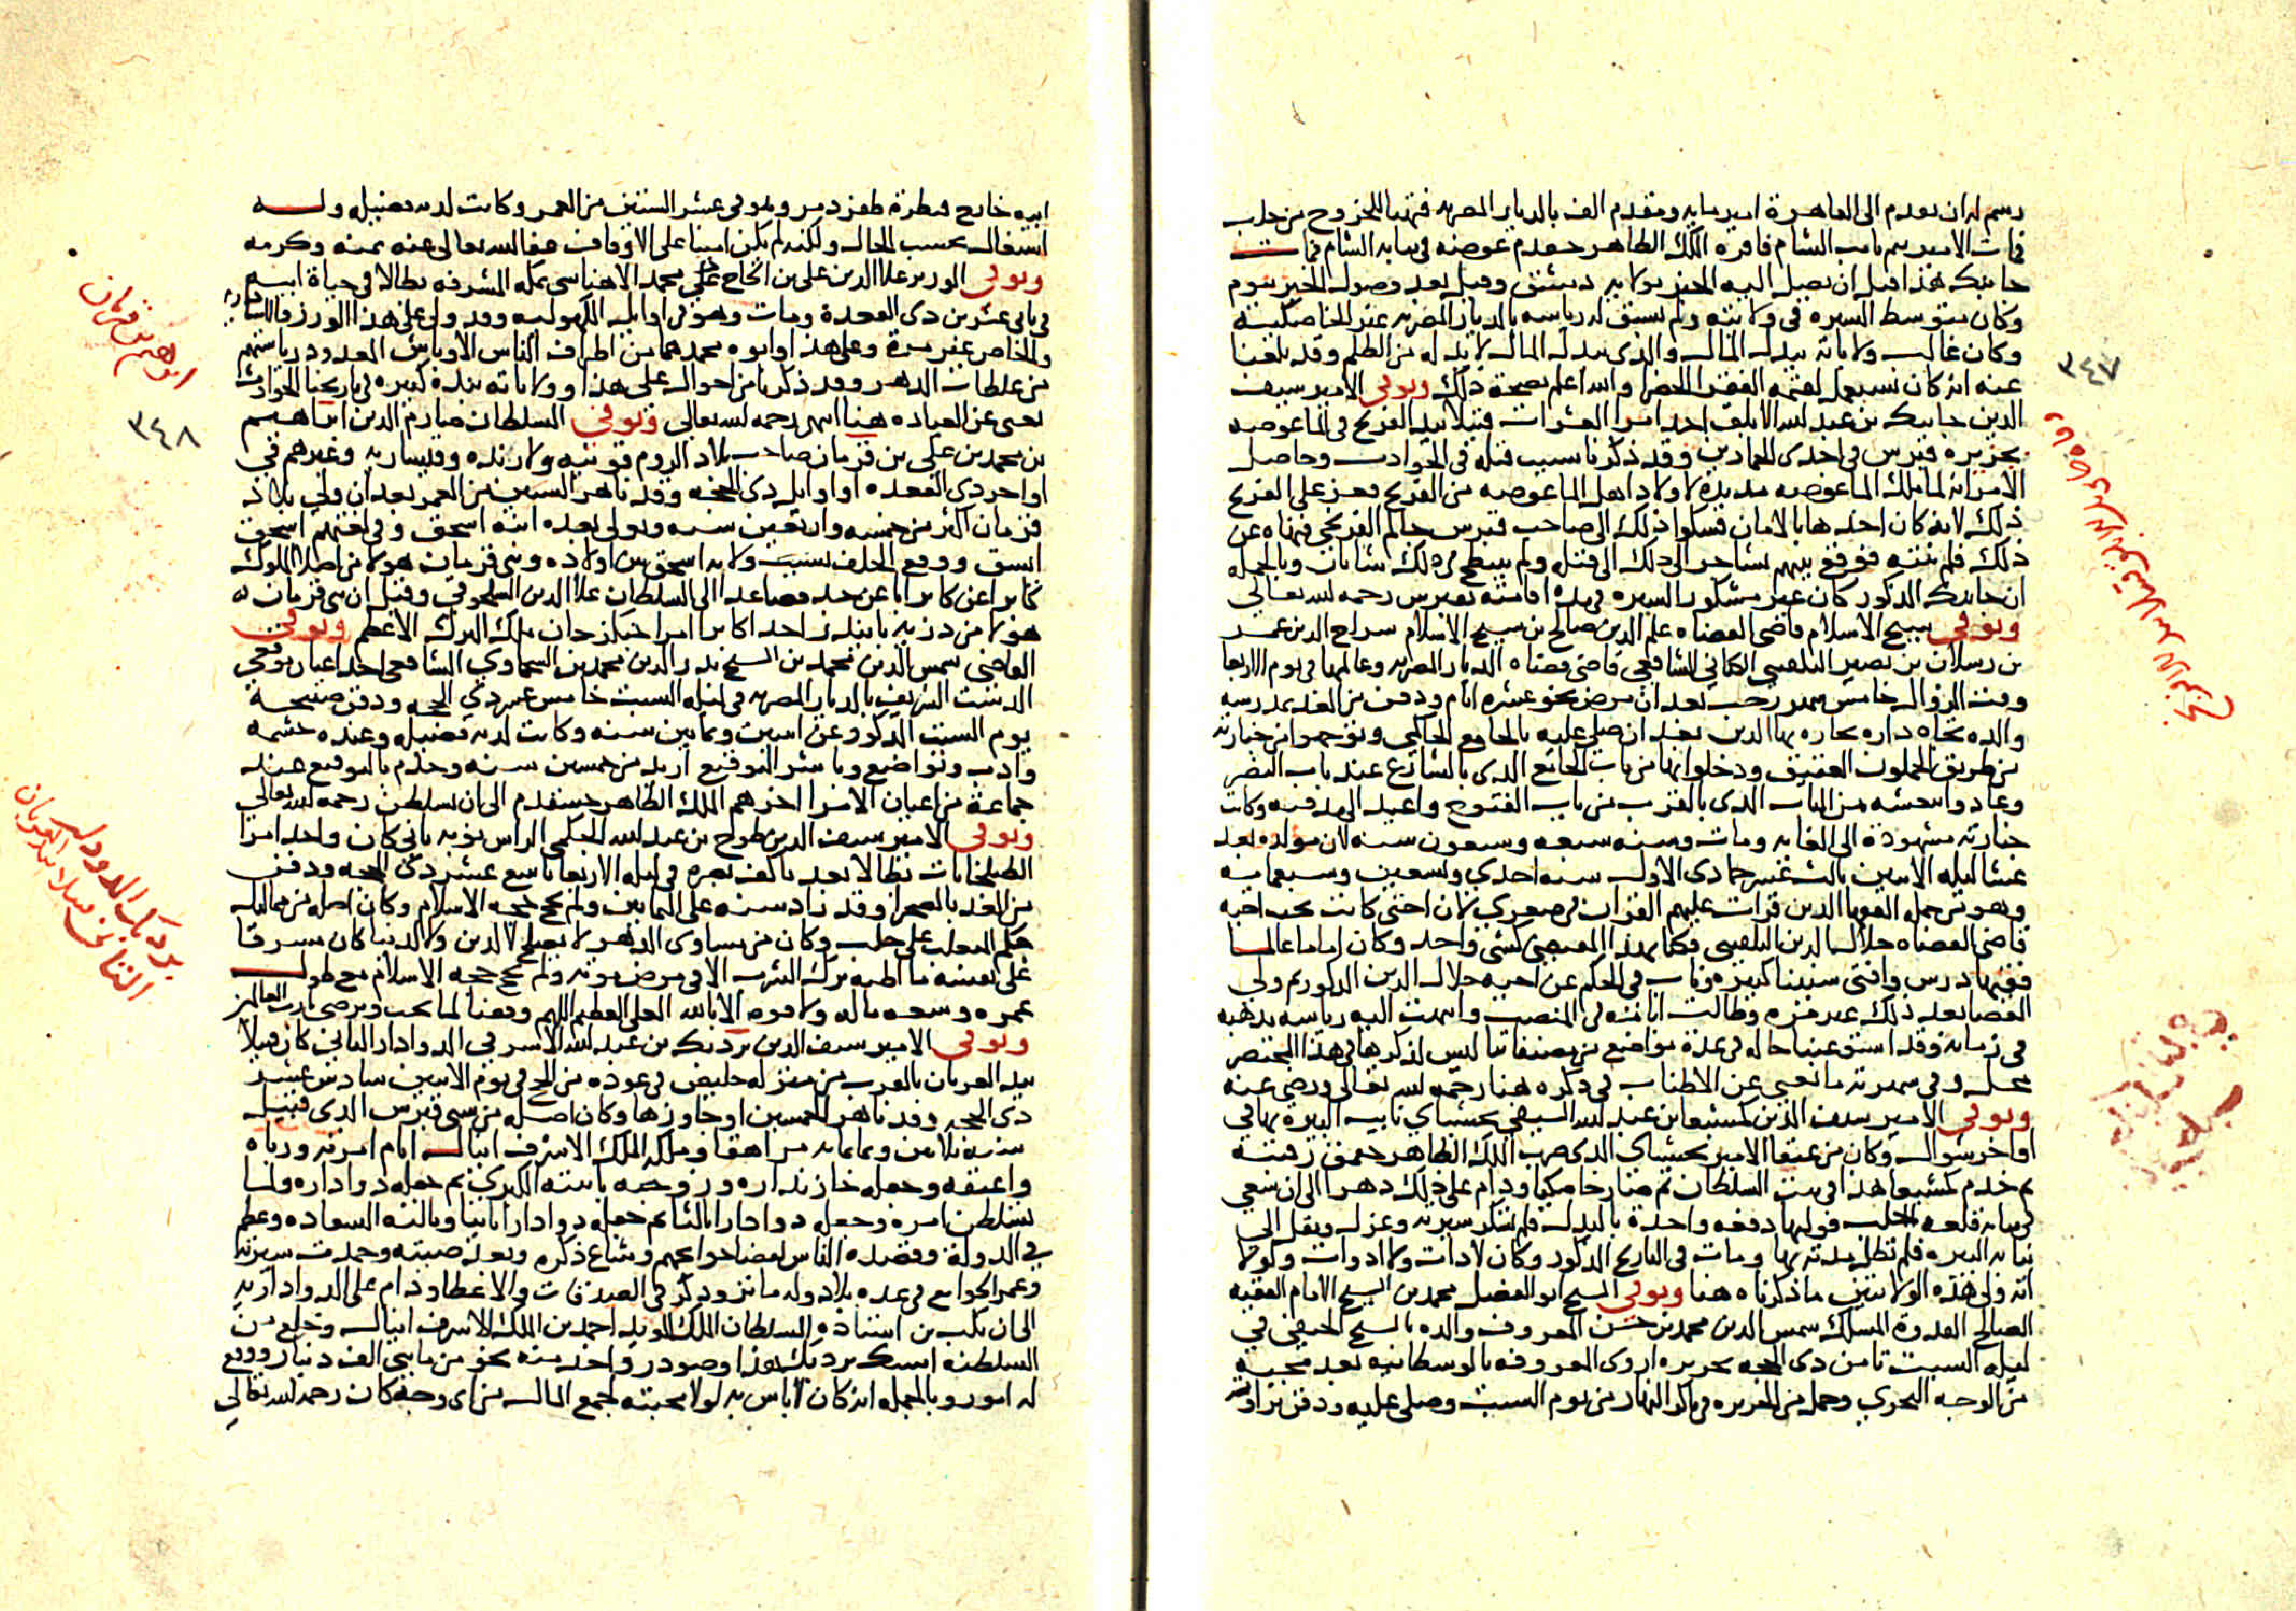 رسم له ان يقدم الى القاهرة امير مايه ومقدم الف بالديار المصريه فتهيا للخروج من حلب
فمات الامير تنم نايب الشام فاقره الملك الظاهر خشقدم عوضه في نيابه الشام فمات
جانبك هذا قبل ان يصل اليه الخبر بولايه دمشق وقيل بعد وصول الخبر بيوم
وكان متوسط السيره في ولايته ولم تسبق له رياسه بالديار المصريه غير الخاصكيه
وكان غالب ولاياته ببدل المال والذي يبدل المال لا بد له من الظلم وقد بلغنا
عنه انه كان والله اعلم بصحة ذلك وتوفي الامير سيف
الدين جانبك بن عبد الله الابلق احد امرا العشرات قتيلا بيد الفرنج في الماغوصه
بجزيره قبرس في احدى الجمادين وقد ذكرنا سبب قتله في الحوادث وحاصل
الامر انه لما ملك الماغوصه اهل الماغوصه من الفرنج فعز على الفرنج
ذلك لانه كان اخدها بالامان فشكوا ذلك الى صاحب قبرس جاكم الفرنجي فنهاه عن
ذلك فلم ينته فوقع بينهم تشاجر الى ذلك الى قتله ولم ينتطح في ذلك شاتان وبالجمله
ان جانبك المذكور كان غير مشكور السيره في مده اقامته بقبرس رحمه الله تعالى
وتوفي شيخ الاسلام قاضي القضاه علم الدين صالح بن شيخ الاسلام سراج الدين عمر
بن رسلان بن نصير البلقيني الكناني الشافعي قاضي قضاه الديار المصريه وعالمها في يوم الاربعا
وقت الزوال خامس شهر رجب بعد ان مرض نحو عشره ايام ودفن من الغد بمدرسه
والده تجاه داره بحاره بها الدين بعد ان صلي عليه بالجامع الحاكمي وتوجهوا بجنازته
من طريق الجملون العتيق ودخلوا بها من باب الجامع الذي بالشارع عند باب النصر
وعادوا بنعشه من الباب الذي بالقرب من باب الفتوح واعيد الى مدفنه وكانت
جنازته مشهودة الى الغايه ومات وسنه سبعه وسبعون سنه لان مولده بعد
عشا ليله الاثنين ثالث عشر جمادي الاول سنه احدي وتسعين وسبعمايه
وهو من جمله الفقها الذين قرات عليهم القران في صغري لان اختي كانت تحت اخيه
قاضي القضاه جلال الدين البلقيني فكنا بهذا المقتضى كشي واحد وكان اماما عالما
فقيها درس وافتى سنينا كثيره وناب في الحكم عن اخيه جلال الدين المذكور ثم ولي
القضا بعد ذلك غير مره وطالت ايامه في المنصب وانتهت اليه رياسه مذهبه
في زمانه وقد استوعبنا حاله في عدة مواضع من مصنفاتنا ليس لذكرها في هذا المختصر
محل وفي شهرته ما يغني عن الاطناب في ذكره هنا رحمه الله تعالى ورضي عنه
وتوفي الامير سيف الدين كمشبغا بن عبد الله السيفي نخشباي نايب البيره بها في
اواخر شوال وكان من عتقا الامير نخشباي الذي ضرب الملك الظاهر جقمق رقبته
ثم خدم كمشبغا هذا في بيت السلطان ثم صار خاصكيا ودام على ذلك دهرا الى ان سعى
في نيابه قلعه حلب فوليها دفعه واحدة بالبدل فلم تشكر سيرته وعزل ونقل الى
نيابه البيره فلم تطل مدته بها ومات في التاريخ المذكور وكان لا ذات ولا ادوات ولولا
انه ولي هذه الولايتين ما ذكرناه هنا وتوفي الشيخ ابو الفضل محمد بن الشيخ الامام الفقيه
الصالح القدوة المسلك شمس الدين محمد بن حسن المعروف والده بالشيخ الحنفي في
ليله السبت ثامن ذي الحجه بجزيره اروى المعروفه بالوسطانيه بعد مجيه
من الوجه البحري وحمل من الجزيره في باكر النهار من يوم السبت وصلي عليه ودفن بزاويه
٣٤٧
ابيه خارج قنطرة طقزدمر وهو في عشر الستين من العمر وكانت لديه فضيله وله
اشتغال بحسب الحال ولكنه لم يكن امينا على الاوقاف عفا الله تعالى عنه بمنه وكرمه
وتوفي الوزير علا الدين علي بن الحاج محمد الاهناسي بمكه المشرفه بطالا في حياة ابيه
في ثاني عشرين ذي القعدة ومات وهو في اوايل الكهوليه وقد ولي علي هذا الوزر
والخاص غير مرة وعلي هذا وابوه محمد هما من اطراف الناس الاوباش المعدود رياستهم
من غلطات الدهر وقد ذكرنا من احوال علي هذا وولاياته نبذة كبيره في تاريخنا الحوادث
تغني عن العياده هنا انتهى رحمه الله تعالى وتوفي السلطان صارم الدين ابراهيم
بن محمد بن علي بن قرمان صاحب بلاد الروم قونيه ولارنده وقيساريه وغيرهم في
اواخر ذي القعده او اوايل ذي الحجه وقد ناهز الستين من العمر بعد ان ولي بلاد
قرمان اكثر من خمسه واربعين سنه وتولى بعده ابنه اسحق وفي لغتهم اسحق
ايسق ووقع الخلف بسبب ولايه اسحق بين اولاده وبني قرمان هولا من اصلا الملوك
كابرا عن كابر ابا عن جد فصاعدا الى السلطان علا الدين السلجوقي وقيل ان بني قرمان
هولا من ذريه احد اكابر امرا جنكز خان ملك الترك الاعظم وتوفي
القاضي شمس الدين محمد بن الشيخ بدر الدين محمد بن السحماوي الشافعي احد اعيان موقعي
الدست الشريف بالديار المصريه في ليله السبت خامس عشر ذي الحجه ودفن صبيحة
يوم السبت المذكور عن اثنين وثمانين سنه وكانت لديه فضيله وعنده حشمه
وادب وتواضع وباشر التوقيع ازيد من خمسين سنه وخدم بالتوقيع عند
جماعة من اعيان الامرا اخرهم الملك الظاهر خشقدم الى ان تسلطن رحمه الله تعالى
وتوفي الامير سيف الدين طوخ بن عبد الله الحكمي الراس نوبه ثاني كان واحد امرا
الطبلخانات بطالا بعد ما كف بصره في ليله الاربعا تاسع عشر ذي الحجه ودفن
من الغد بالصحرا وقد زاد سنه على الثمانين ولم يحج حجه الاسلام وكان اصله من مماليك
جكم المتغلب على حلب وكان من مساوي الدهر لا يصلح لا لدين ولا لدنيا كان مسرفا
على نفسه ما اظنه ترك الشرب الا في مرض موته ولم يحج حجه الاسلام مع طول
عمره وسعه ماله ولا قوه الا بالله العلي العظيم اللهم وفقنا لما تحب وترضى يا رب العالمين
وتوفي الامير سيف الدين بردبك بن عبد الله الاشرفي الدوادار الثاني كان قتيلا
بيد العربان بالقرب من منزله خليص في عوده من الحج في يوم الاثنين سادس عشر
ذي الحجه وقد ناهز الخمسين او جاوزها وكان اصله من سبي قبرس الذي
سنه تلاثين وثمانمايه مراهقا وملكه الملك الاشرف اينال ايام امرته ورباه
واعتقه وجعله خازنداره وزوجه بابنته الكبرى ثم جعله دواداره ولما
تسلطن امره وجعله دوادارا ثالثا ثم جعله دوادارا ثانيا ونالته السعاده وعظم
في الدولة وقصده الناس لقضا حوايجهم وشاع ذكره وبعد صيته وحمدت سيرته
وعمر الجوامع في عده بلاد وله ماثر وذكر في الصدقات والاعطا ودام على الدواداريه
الى ان نكب ابن استاذه السلطان الملك المويد احمد بن الملك الاشرف اينال وخلع من
السلطنه امسك بردبك هذا وصودر واخذ منه نحو من مايتي الف دينار ووقع
له امور وبالجمله انه كان لا باس به لولا محبته لجمع المال من اي وجه كان رحمه الله تعالى
ابراهيم بن قرمان
٣٤٨
بردبك الدوادار
الثاني قتيلا بيد العربان